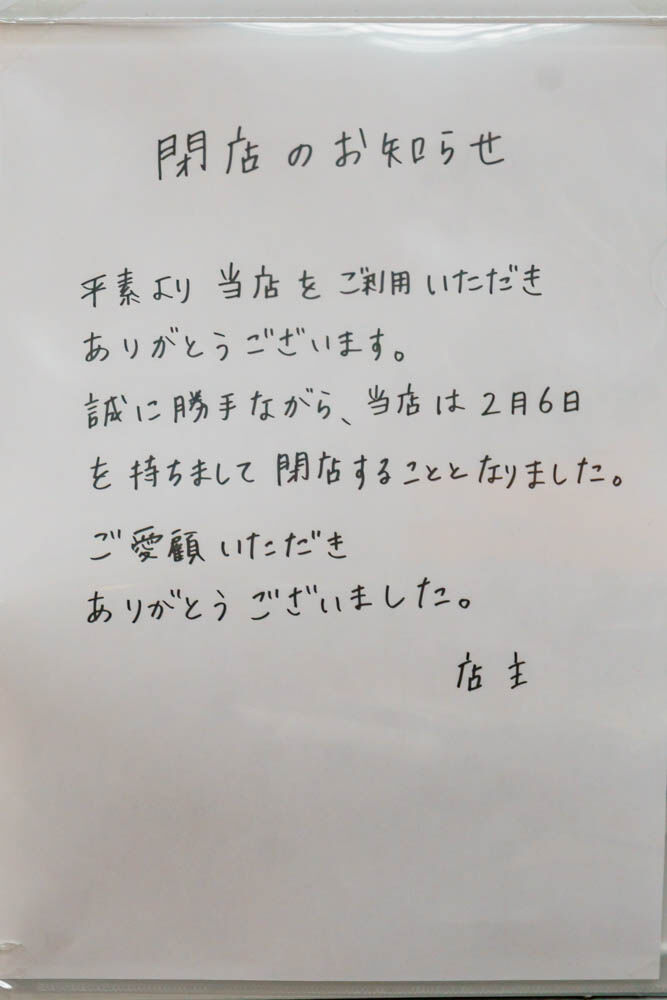 閉店のお知らせ
平素より当店をご利用いただき
ありがとうございます。
誠に勝手ながら、当店は2月6日
を持ちまして閉店することとなりました。
ご愛顧いただき
ありがとうございました。
店主